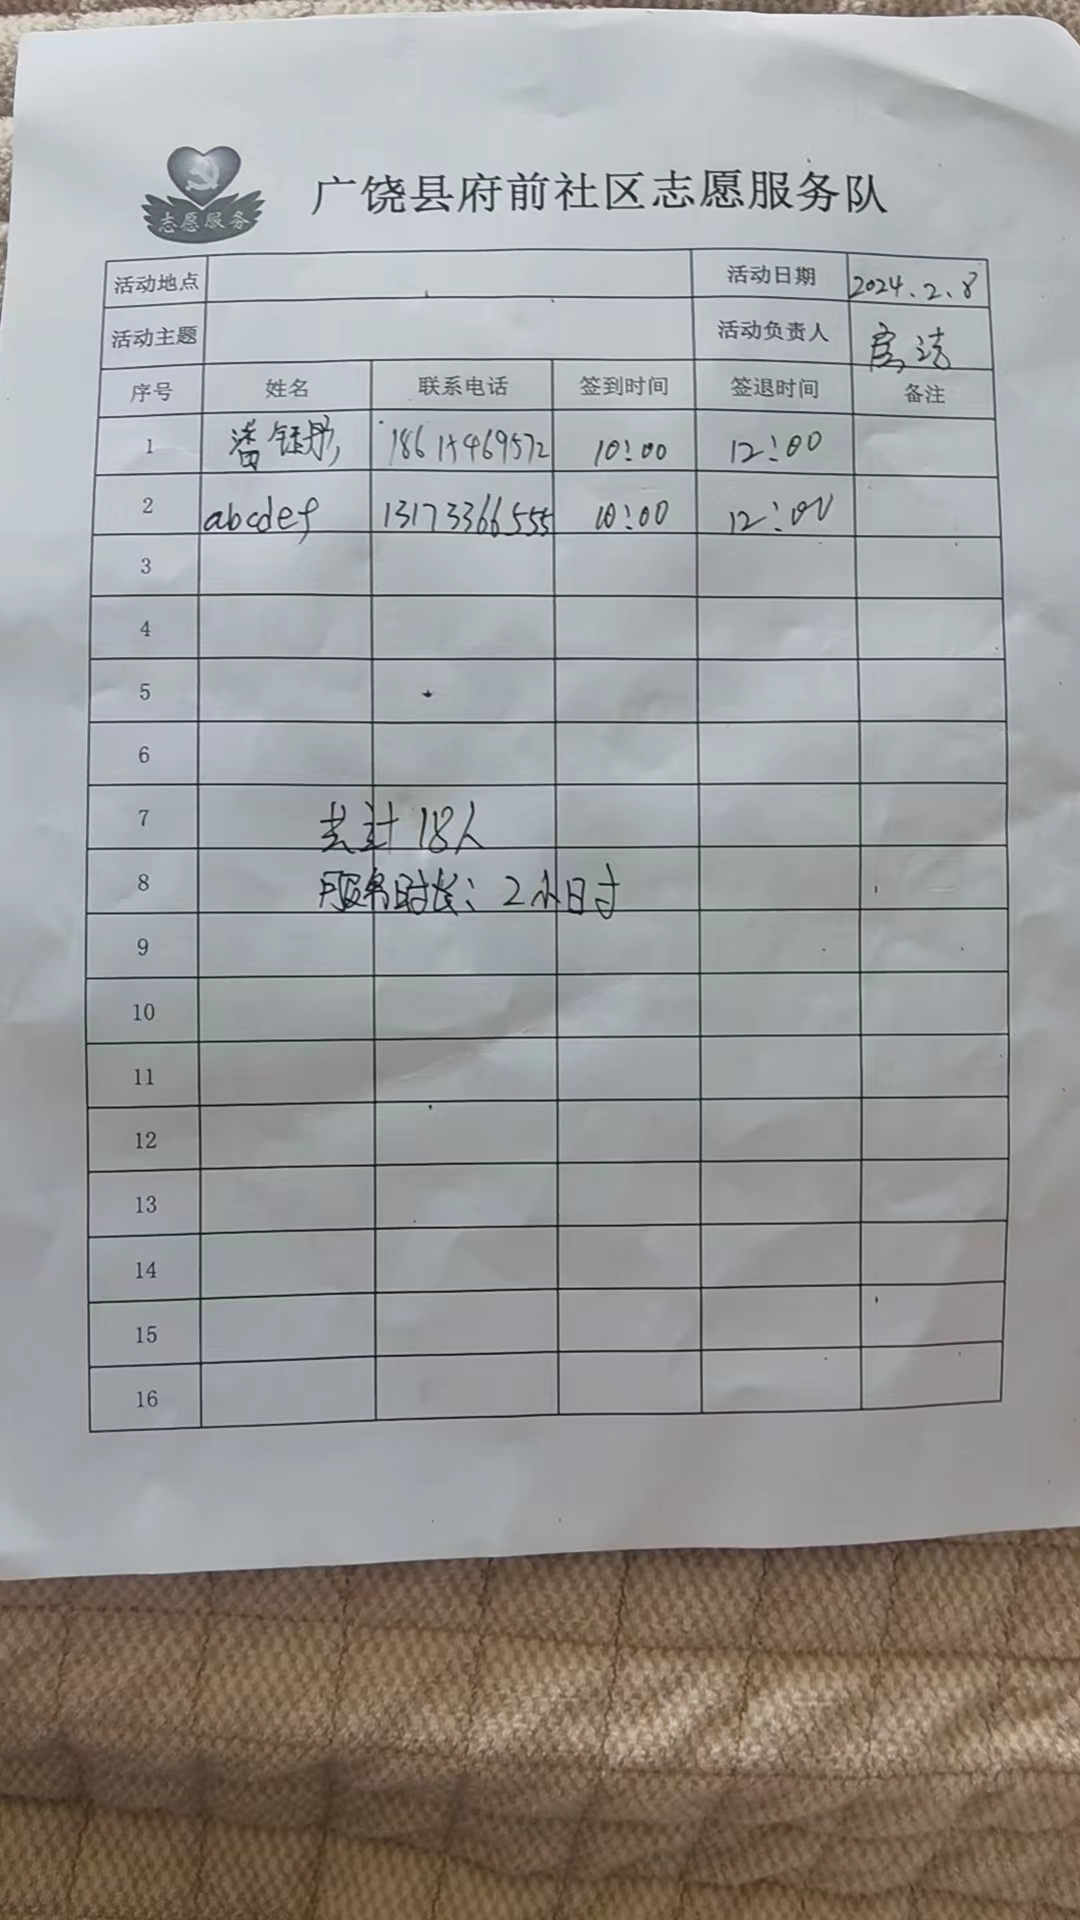 志愿服务
广饶县府前社区志愿服务队
活动地点 活动日期 2024.2.8
活动主题 活动负责人
序号 姓名 联系电话 签到时间 签退时间 备注
1 潘钰彤 18615469572 10:00 12:00
2 abcdef 13173366555 10:00 12:00
3
4
5
6
7 共计18人
8 服务时长：2小时
9
10
11
12
13
14
15
16